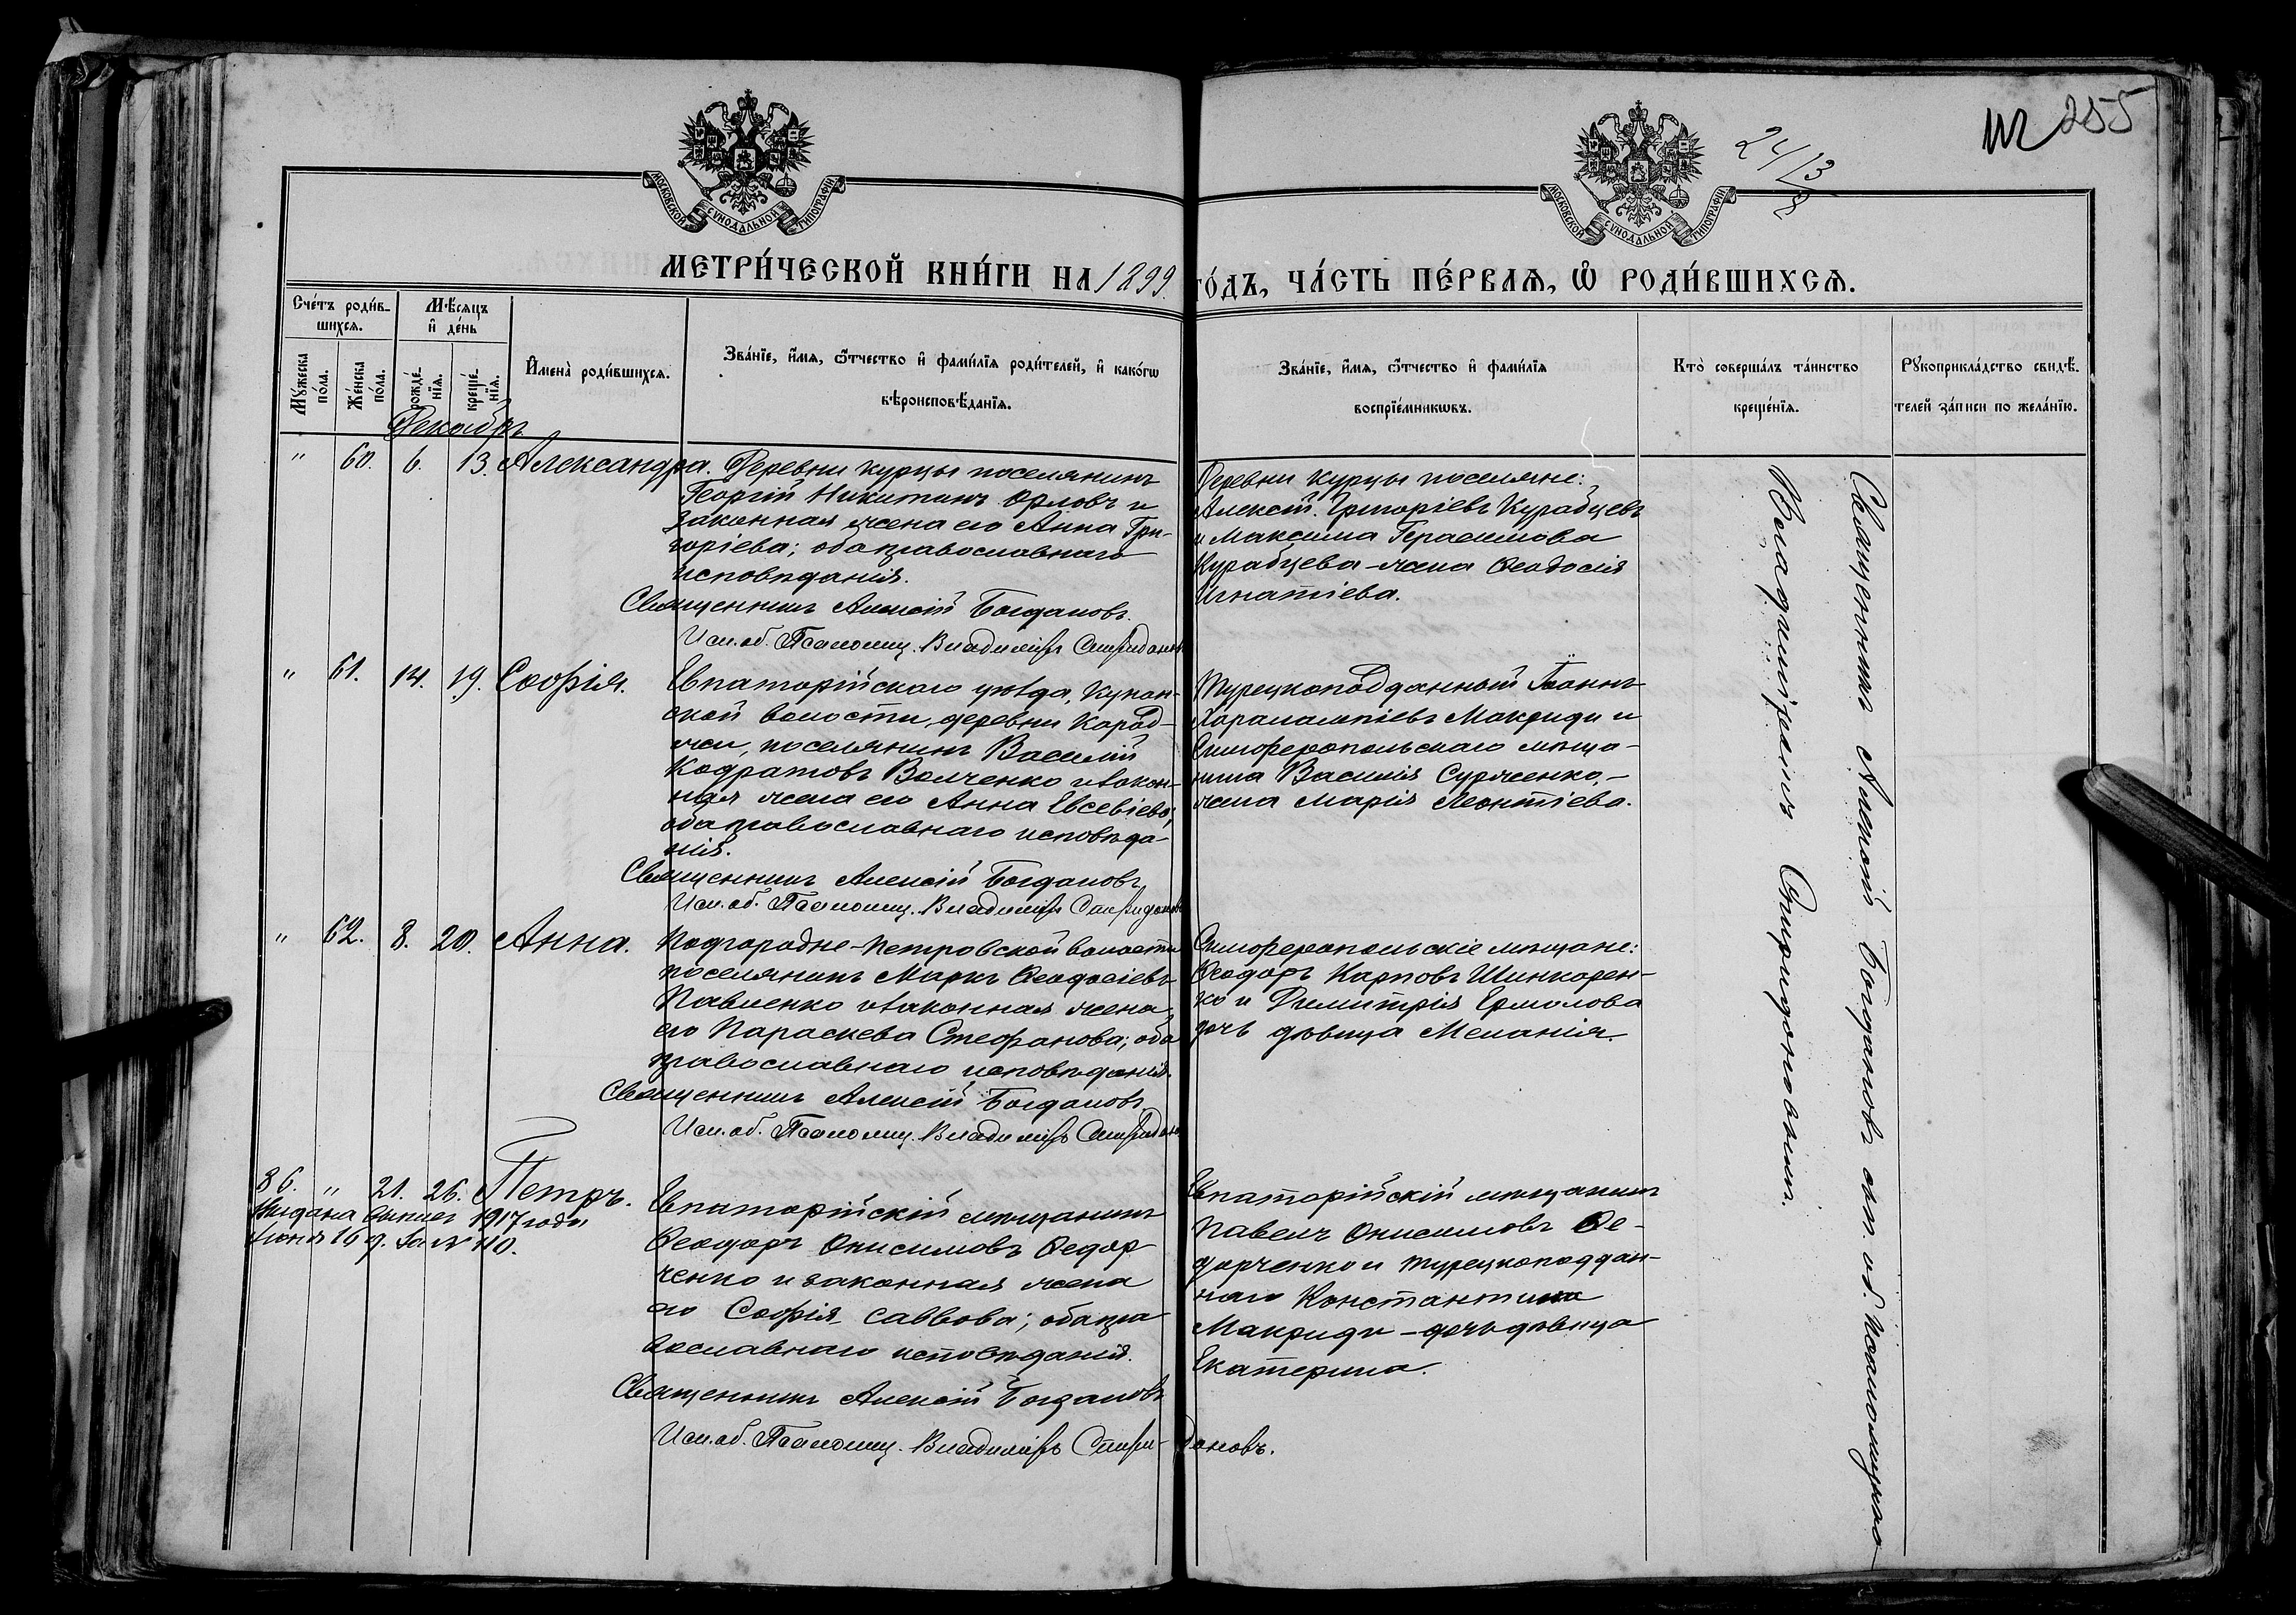 255
24/13
МОСКОВСКОЙ СѴНОДАЛЬНОЙ ТИПОГРАФІИ
МОСКОВСКОЙ СѴНОДАЛЬНОЙ ТИПОГРАФІИ
МЕТРИ́ЧЕСКОЙ КНИ́ГИ НА 1899. ГО́ДЪ, ЧА́СТЬ ПЕ́РВАЯ, Ѡ҆ РОДИ́ВШИХСЯ.
Сче́тъ роди́в-
шихся.
Мѣ́сяцъ
и҆ де́нь
Мꙋ́жеска по́ла.
Же́нска по́ла.
рожде́-
нїя.
креще́-
нїя.
И҆мена̀ роди́вшихся.
Зва́нїе, и҆́мя, ѻ҆́тчество и҆ фами́лїя роди́телей, и҆ како́гѡ
вѣроисповѣ́данїя.
Зва́нїе, и҆́мя, ѻ҆́тчество и҆ фами́лїя
воспрїе́мникѡвъ.
Кто̀ соверша́лъ та́инство
креще́нїя.
Рꙋкоприкла́дство свидѣ́-
телей за́писи по жела́нїю.
Декабрь
" 60. 6. 13. Александра. Деревни Курцы поселянинъ
Георгій Никитинъ Орловъ и
законная жена его Анна Гри-
горіева; оба православнаго
исповѣданія.
Священникъ Алексій Богдановъ.
Исп. об. Псаломщ. Владиміръ Спиридоновъ
Деревни Курцы поселяне:
Алексѣй Григоріевъ Курабцевъ
и Максима Герасимова
Курабцева - жена Ѳеодосія
Игнатіева.
" 61. 14. 19. Софія. Евпаторійскаго уѣзда, Кунан-
ской волости, деревни Карад-
жи, поселянинъ Василій
Кодратовъ Волченко и закон-
ная жена его Анна Евсевіева;
оба православнаго исповѣда-
нія.
Священникъ Алексій Богдановъ
Исп. об. Псаломщ. Владиміръ Спиридоновъ
Турецкоподданный Іоаннъ
Харалампіевъ Макриди и
Симферопольскаго мѣща-
нина Василія Сурженко, -
жена Марія Леонтіева.
" 62. 8. 20. Анна. Подгородне-Петровской волости
поселянинъ Маркъ Ѳеодосіевъ
Павленко и законная жена
его Параскева Стефанова; оба
православнаго исповѣданія.
Священникъ Алексій Богдановъ
Исп. об. Псаломщ. Владиміръ Спиридоновъ
Симферопольскіе мѣщане:
Ѳеодоръ Карповъ Шинкорен-
ко и Димитрія Ермолова
дочь дѣвица Меланія.
86. " 21. 26. Петръ.
Выдана выпись 1917 года
Іюня 16 д. за № 410.
Евпаторійскій мѣщанинъ
Ѳеодоръ Онисимовъ Ѳедор-
ченко и законная жена
его Софія Саввова; оба пра-
вославнаго исповѣданія.
Священникъ Алексій Богдановъ
Исп. об. Псаломщ. Владиміръ Спиридоновъ.
Евпаторійскій мѣщанинъ
Павелъ Онисимовъ Ѳе-
дорченко и турецкоподдан-
наго Константина
Макриди - дочь дѣвица
Екатерина.
Священникъ Алексій Богдановъ съ и. об. псаломщика
Владиміромъ Спиридоновымъ.